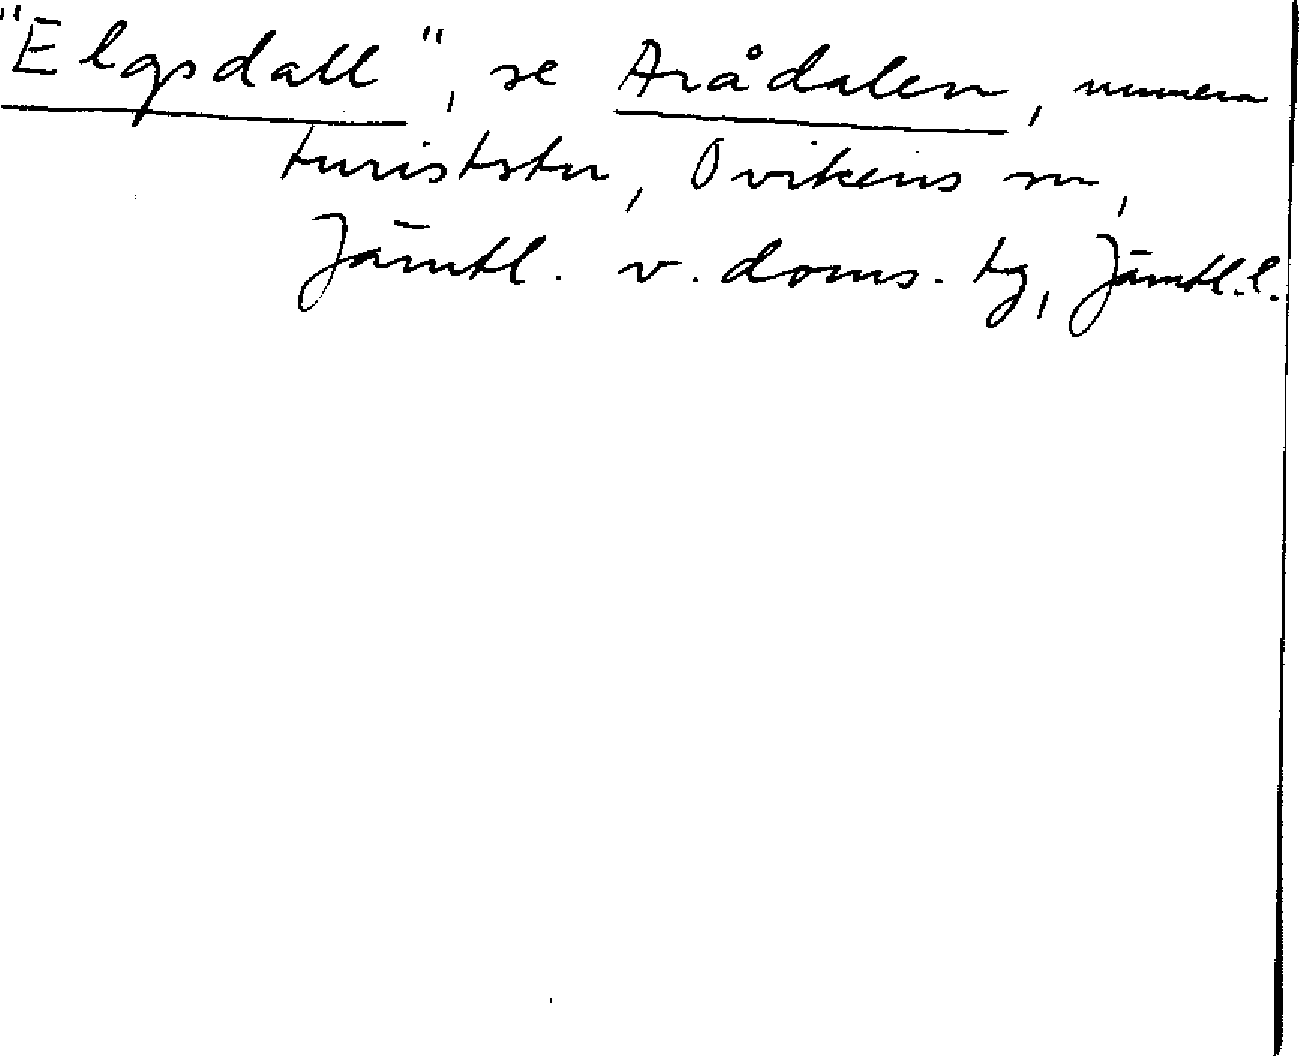 "Elgsdall", se Arådalen, numera
turiststn, Ovikens sn,
Jämtl. v. doms. tg, Jämtl. l.